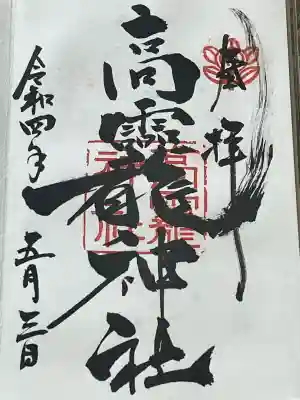 奉拝
高龗神社
令和四年五月三日